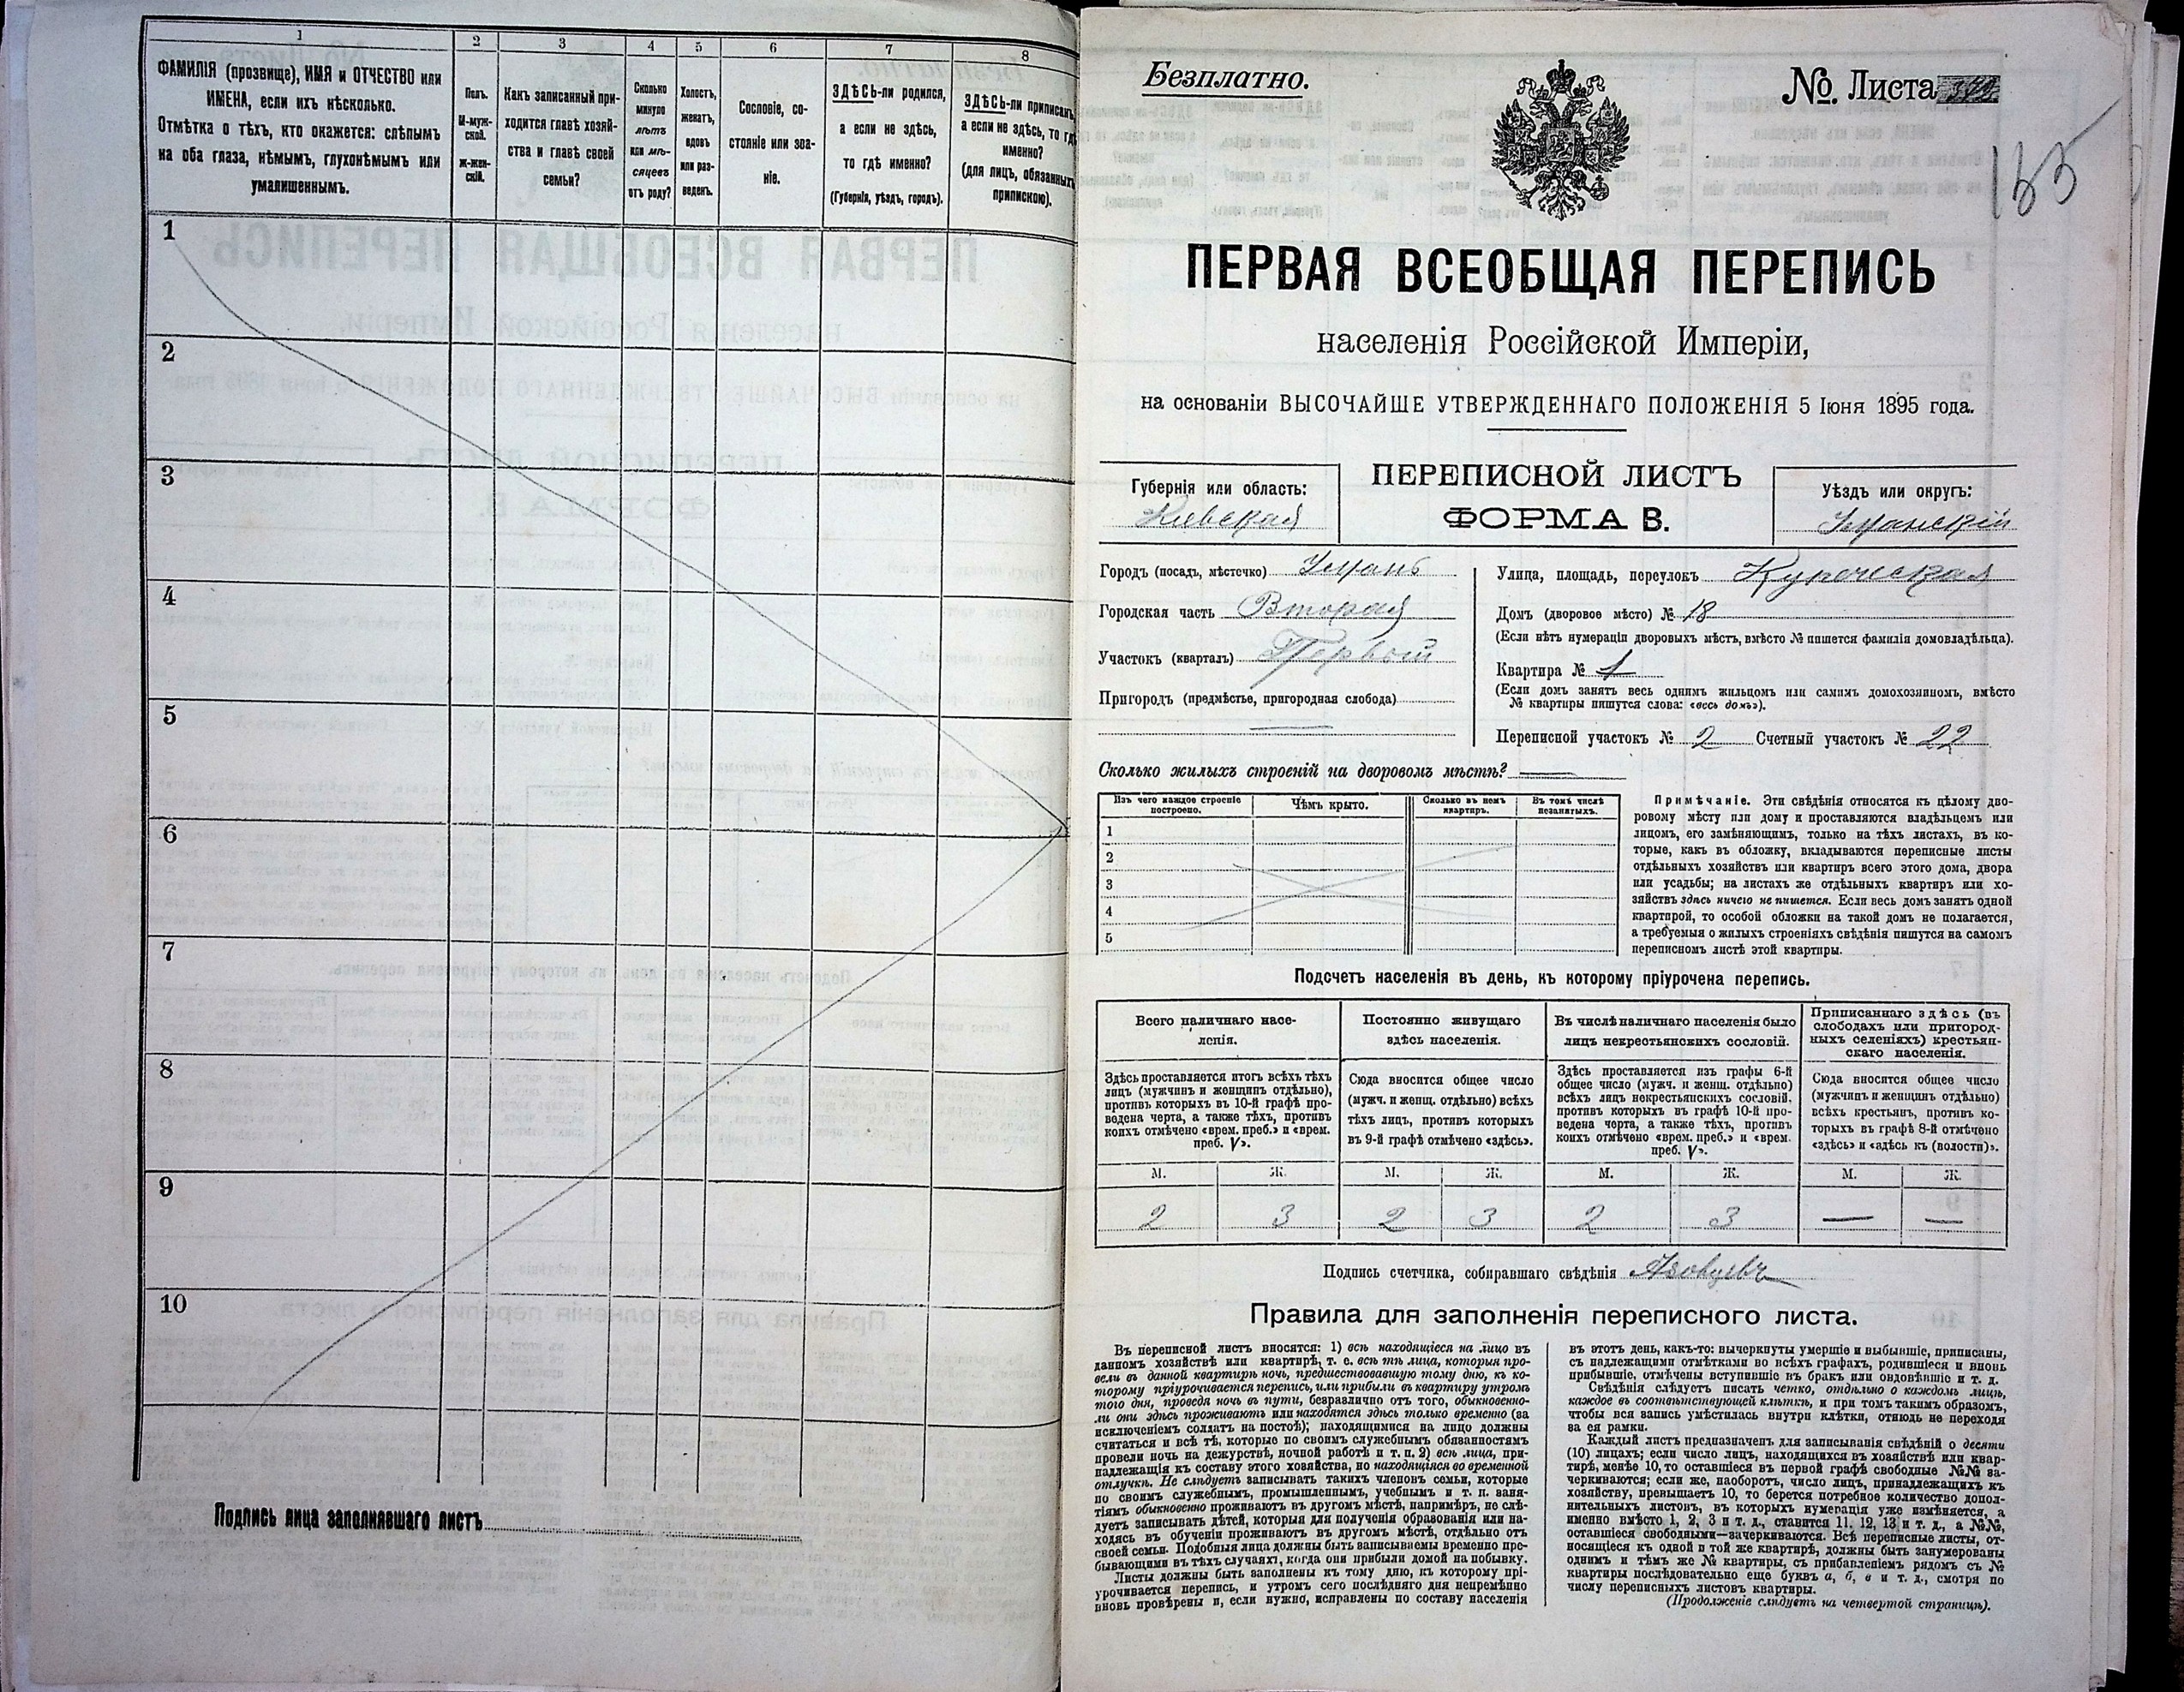 1
2
3
4
5
6
7
8
ФАМИЛІЯ (прозвище), ИМЯ и ОТЧЕСТВО или
ИМЕНА, если ихъ нѣсколько.
Отмѣтка о тѣхъ, кто окажется: слѣпымъ
на оба глаза, нѣмымъ, глухонѣмымъ или
умалишеннымъ.
Полъ.
М-муж-
ской.
ж-жен-
скій.
Какъ записанный при-
ходится главѣ хозяй-
ства и главѣ своей
семьи?
Сколько
минуло
лѣтъ
или мѣ-
сяцевъ
отъ роду?
Холостъ,
женатъ,
вдовъ
или раз-
веденъ.
Сословіе, со-
стояніе или зва-
ніе.
ЗДѢСЬ-ли родился,
а если не здѣсь,
то гдѣ именно?
(Губернія, уѣздъ, городъ).
ЗДѢСЬ-ли приписанъ,
а если не здѣсь, то гдѣ
именно?
(для лицъ, обязанныхъ
припискою).
1
2
3
4
5
6
7
8
9
10
Подпись лица заполнявшаго листъ
Безплатно.
№. Листа
ПЕРВАЯ ВСЕОБЩАЯ ПЕРЕПИСЬ
населенія Россійской Имперіи,
на основаніи ВЫСОЧАЙШЕ УТВЕРЖДЕННАГО ПОЛОЖЕНІЯ 5 Іюня 1895 года.
Губернія или область:
Кіевская
ПЕРЕПИСНОЙ ЛИСТЪ
ФОРМА В.
Уѣздъ или округъ:
Уманскій
Городъ (посадъ, мѣстечко) Умань
Городская часть Вторая
Участокъ (кварталъ) Первый
Пригородъ (предмѣстье, пригородная слобода)
Улица, площадь, переулокъ Купеческая
Домъ (дворовое мѣсто) № 18
(Если нѣтъ нумераціи дворовыхъ мѣстъ, вмѣсто № пишется фамилія домовладѣльца).
Квартира № 1
(Если домъ занятъ весь однимъ жильцомъ или самимъ домохозяиномъ, вмѣсто
№ квартиры пишутся слова: «весь домъ»).
Переписной участокъ № 2 Счетный участокъ № 22
Сколько жилыхъ строеній на дворовомъ мѣстѣ?
Изъ чего каждое строеніе
построено.
Чѣмъ крыто.
Сколько въ немъ
квартиръ.
Въ томъ числѣ
незанятыхъ.
1
2
3
4
5
Примѣчаніе. Эти свѣдѣнія относятся къ цѣлому дво-
ровому мѣсту или дому и проставляются владѣльцемъ или
лицомъ, его замѣняющимъ, только на тѣхъ листахъ, въ ко-
торые, какъ въ обложку, вкладываются переписные листы
отдѣльныхъ хозяйствъ или квартиръ всего этого дома, двора
или усадьбы; на листахъ же отдѣльныхъ квартиръ или хо-
зяйствъ здѣсь ничего не пишется. Если весь домъ занятъ одной
квартирой, то особой обложки на такой домъ не полагается,
а требуемыя о жилыхъ строеніяхъ свѣдѣнія пишутся на самомъ
переписномъ листѣ этой квартиры.
Подсчетъ населенія въ день, къ которому пріурочена перепись.
Всего наличнаго насе-
ленія.
Здѣсь проставляется итогъ всѣхъ тѣхъ
лицъ (мужчинъ и женщинъ отдѣльно),
противъ которыхъ въ 10-й графѣ про-
ведена черта, а также тѣхъ, противъ
коихъ отмѣчено «врем. преб.» и «врем.
преб. V».
Постоянно живущаго
здѣсь населенія.
Сюда вносится общее число
(мужч. и женщ. отдѣльно) всѣхъ
тѣхъ лицъ, противъ которыхъ
въ 9-й графѣ отмѣчено «здѣсь».
Въ числѣ наличнаго населенія было
лицъ некрестьянскихъ сословій.
Здѣсь проставляется изъ графы 6-й
общее число (мужч. и женщ. отдѣльно)
всѣхъ лицъ некрестьянскихъ сословій.
противъ которыхъ въ графѣ 10-й про-
ведена черта, а также тѣхъ, противъ
коихъ отмѣчено «врем. преб.» и «врем.
преб. V».
Приписаннаго здѣсь (въ
слободахъ или пригород-
ныхъ селеніяхъ) крестьян-
скаго населенія.
Сюда вносится общее число
(мужчинъ и женщинъ отдѣльно)
всѣхъ крестьянъ, противъ ко-
торыхъ въ графѣ 8-й отмѣчено
«здѣсь» и «здѣсь къ (волости)».
М. Ж. М. Ж. М. Ж. М. Ж.
2 3 2 3 2 3 — —
Подпись счетчика, собиравшаго свѣдѣнія
Правила для заполненія переписного листа.
Въ переписной листъ вносятся: 1) всѣ находящіеся на лицо въ
данномъ хозяйствѣ или квартирѣ, т. е. всѣ тѣ лица, которыя про-
вели въ данной квартирѣ ночь, предшествовавшую тому дню, къ ко-
торому пріурочивается перепись, или прибыли въ квартиру утромъ
того дня, проведя ночь въ пути, безразлично отъ того, обыкновенно-
ли они здѣсь проживаютъ или находятся здѣсь только временно (за
исключеніемъ солдатъ на постоѣ); находящимися на лицо должны
считаться и всѣ тѣ, которые по своимъ служебнымъ обязанностямъ
провели ночь на дежурствѣ, ночной работѣ и т. п. 2) всѣ лица, при-
надлежащія къ составу этого хозяйства, но находящіяся во временной
отлучкѣ. Не слѣдуетъ записывать такихъ членовъ семьи, которые
по своимъ служебнымъ, промышленнымъ, учебнымъ и т. п. заня-
тіямъ обыкновенно проживаютъ въ другомъ мѣстѣ, напримѣръ, не слѣ-
дуетъ записывать дѣтей, которыя для полученія образованія или на-
ходясь въ обученіи проживаютъ въ другомъ мѣстѣ, отдѣльно отъ
своей семьи. Подобныя лица должны быть записываемы временно пре-
бывающими въ тѣхъ случаяхъ, когда они прибыли домой на побывку.
Листы должны быть заполнены къ тому дню, къ которому прі-
урочивается перепись, и утромъ сего послѣдняго дня непремѣнно
вновь провѣрены и, если нужно, исправлены по составу населенія
въ этотъ день, какъ-то: вычеркнуты умершіе и выбывшіе, приписаны,
съ надлежащими отмѣтками во всѣхъ графахъ, родившіеся и вновь
прибывшіе, отмѣчены вступившіе въ бракъ или овдовѣвшіе и т. д.
Свѣдѣнія слѣдуетъ писать четко, отдѣльно о каждомъ лицѣ,
каждое въ соотвѣтствующей клѣткѣ, и при томъ такимъ образомъ,
чтобы вся запись умѣстилась внутри клѣтки, отнюдь не переходя
за ея рамки.
Каждый листъ предназначенъ для записыванія свѣдѣній о десяти
(10) лицахъ; если число лицъ, находящихся въ хозяйствѣ или квар-
тирѣ, менѣе 10, то оставшіеся въ первой графѣ свободные №№ за-
черкиваются; если же, наоборотъ, число лицъ, принадлежащихъ къ
хозяйству, превышаетъ 10, то берется потребное количество допол-
нительныхъ листовъ, въ которыхъ нумерація уже измѣняется, а
именно вмѣсто 1, 2, 3 и т. д., ставится 11, 12, 13 и т. д., а №№,
оставшіеся свободными—зачеркиваются. Всѣ переписные листы, от-
носящіеся къ одной и той же квартирѣ, должны быть занумерованы
однимъ и тѣмъ же № квартиры, съ прибавленіемъ рядомъ съ №
квартиры послѣдовательно еще буквъ а, б, в и т. д., смотря по
числу переписныхъ листовъ квартиры.
(Продолженіе слѣдуетъ на четвертой страницѣ).